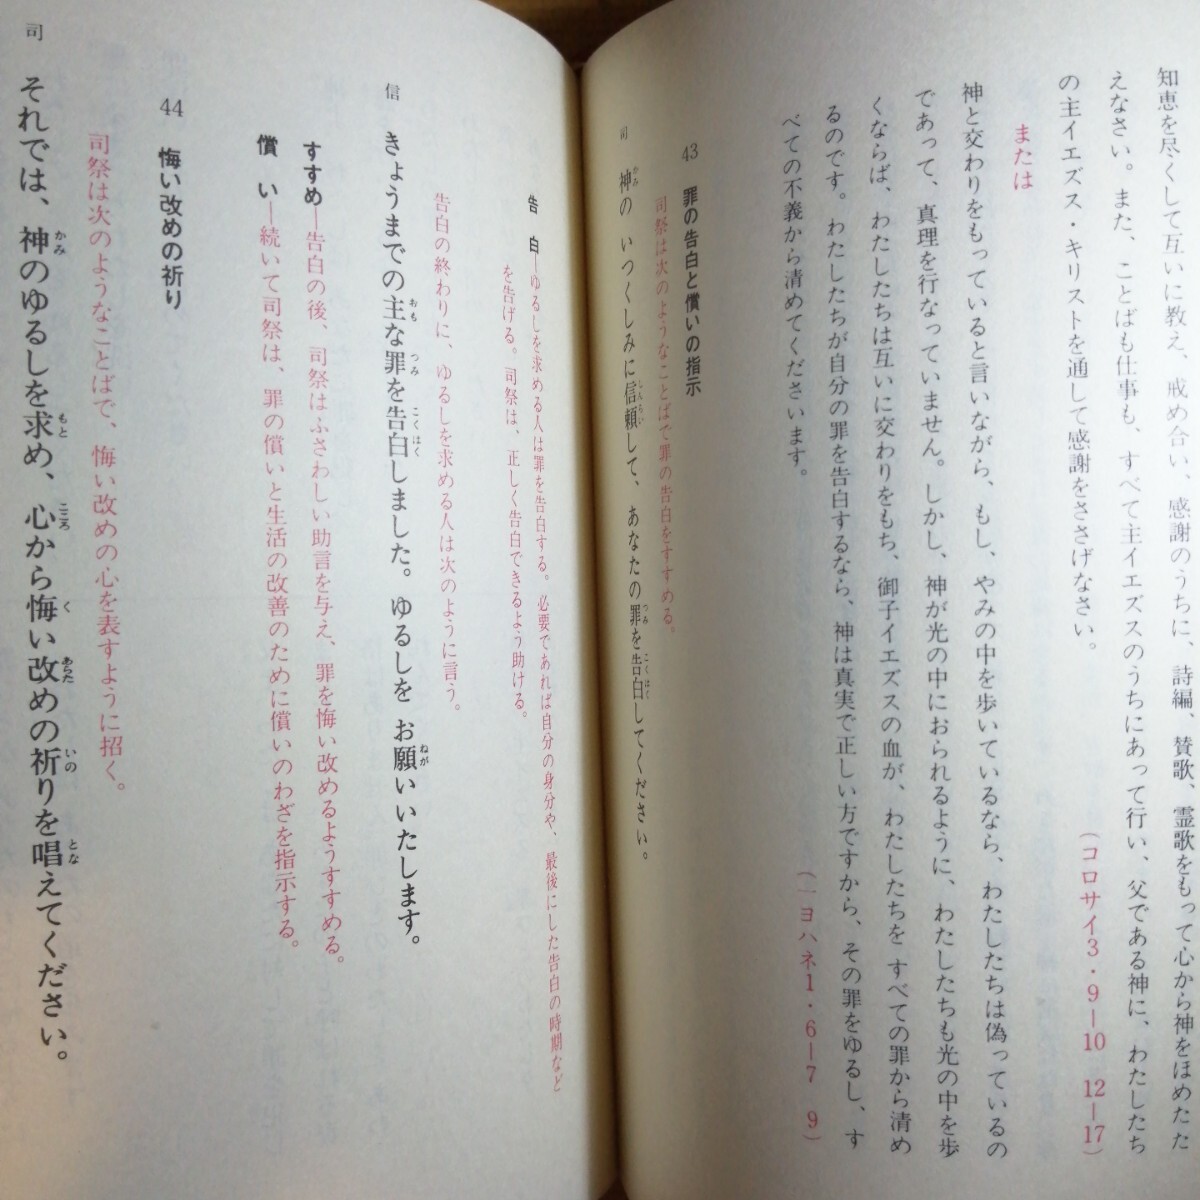 知恵を尽くして互いに教え、戒め合い、感謝のうちに、詩編、賛歌、霊歌をもって心から神をほめたた
えなさい。また、ことばも仕事も、すべて主イエズスのうちにあって行い、父である神に、わたしたち
の主イエズス・キリストを通して感謝をささげなさい。
（コロサイ3・9―10　12―17）
または
神と交わりをもっていると言いながら、もし、やみの中を歩いているなら、わたしたちは偽っているの
であって、真理を行なっていません。しかし、神が光の中におられるように、わたしたちも光の中を歩
くならば、わたしたちは互いに交わりをもち、御子イエズスの血が、わたしたちを すべての罪から清め
るのです。わたしたちが自分の罪を告白するなら、神は真実で正しい方ですから、その罪をゆるし、す
べての不義から清めてくださいます。
（一ヨハネ1・6―7　9）
43　罪の告白と償いの指示
司祭は次のようなことばで罪の告白をすすめる。
司　神の いつくしみに信頼して、あなたの罪を告白してください。
告　白―ゆるしを求める人は罪を告白する。必要であれば自分の身分や、最後にした告白の時期など
を告げる。司祭は、正しく告白できるよう助ける。
告白の終わりに、ゆるしを求める人は次のように言う。
信　きょうまでの主な罪を告白しました。ゆるしを お願いいたします。
すすめ―告白の後、司祭はふさわしい助言を与え、罪を悔い改めるようすすめる。
償　い―続いて司祭は、罪の償いと生活の改善のために償いのわざを指示する。
44　悔い改めの祈り
司祭は次のようなことばで、悔い改めの心を表すように招く。
司　それでは、神のゆるしを求め、心から悔い改めの祈りを唱えてください。